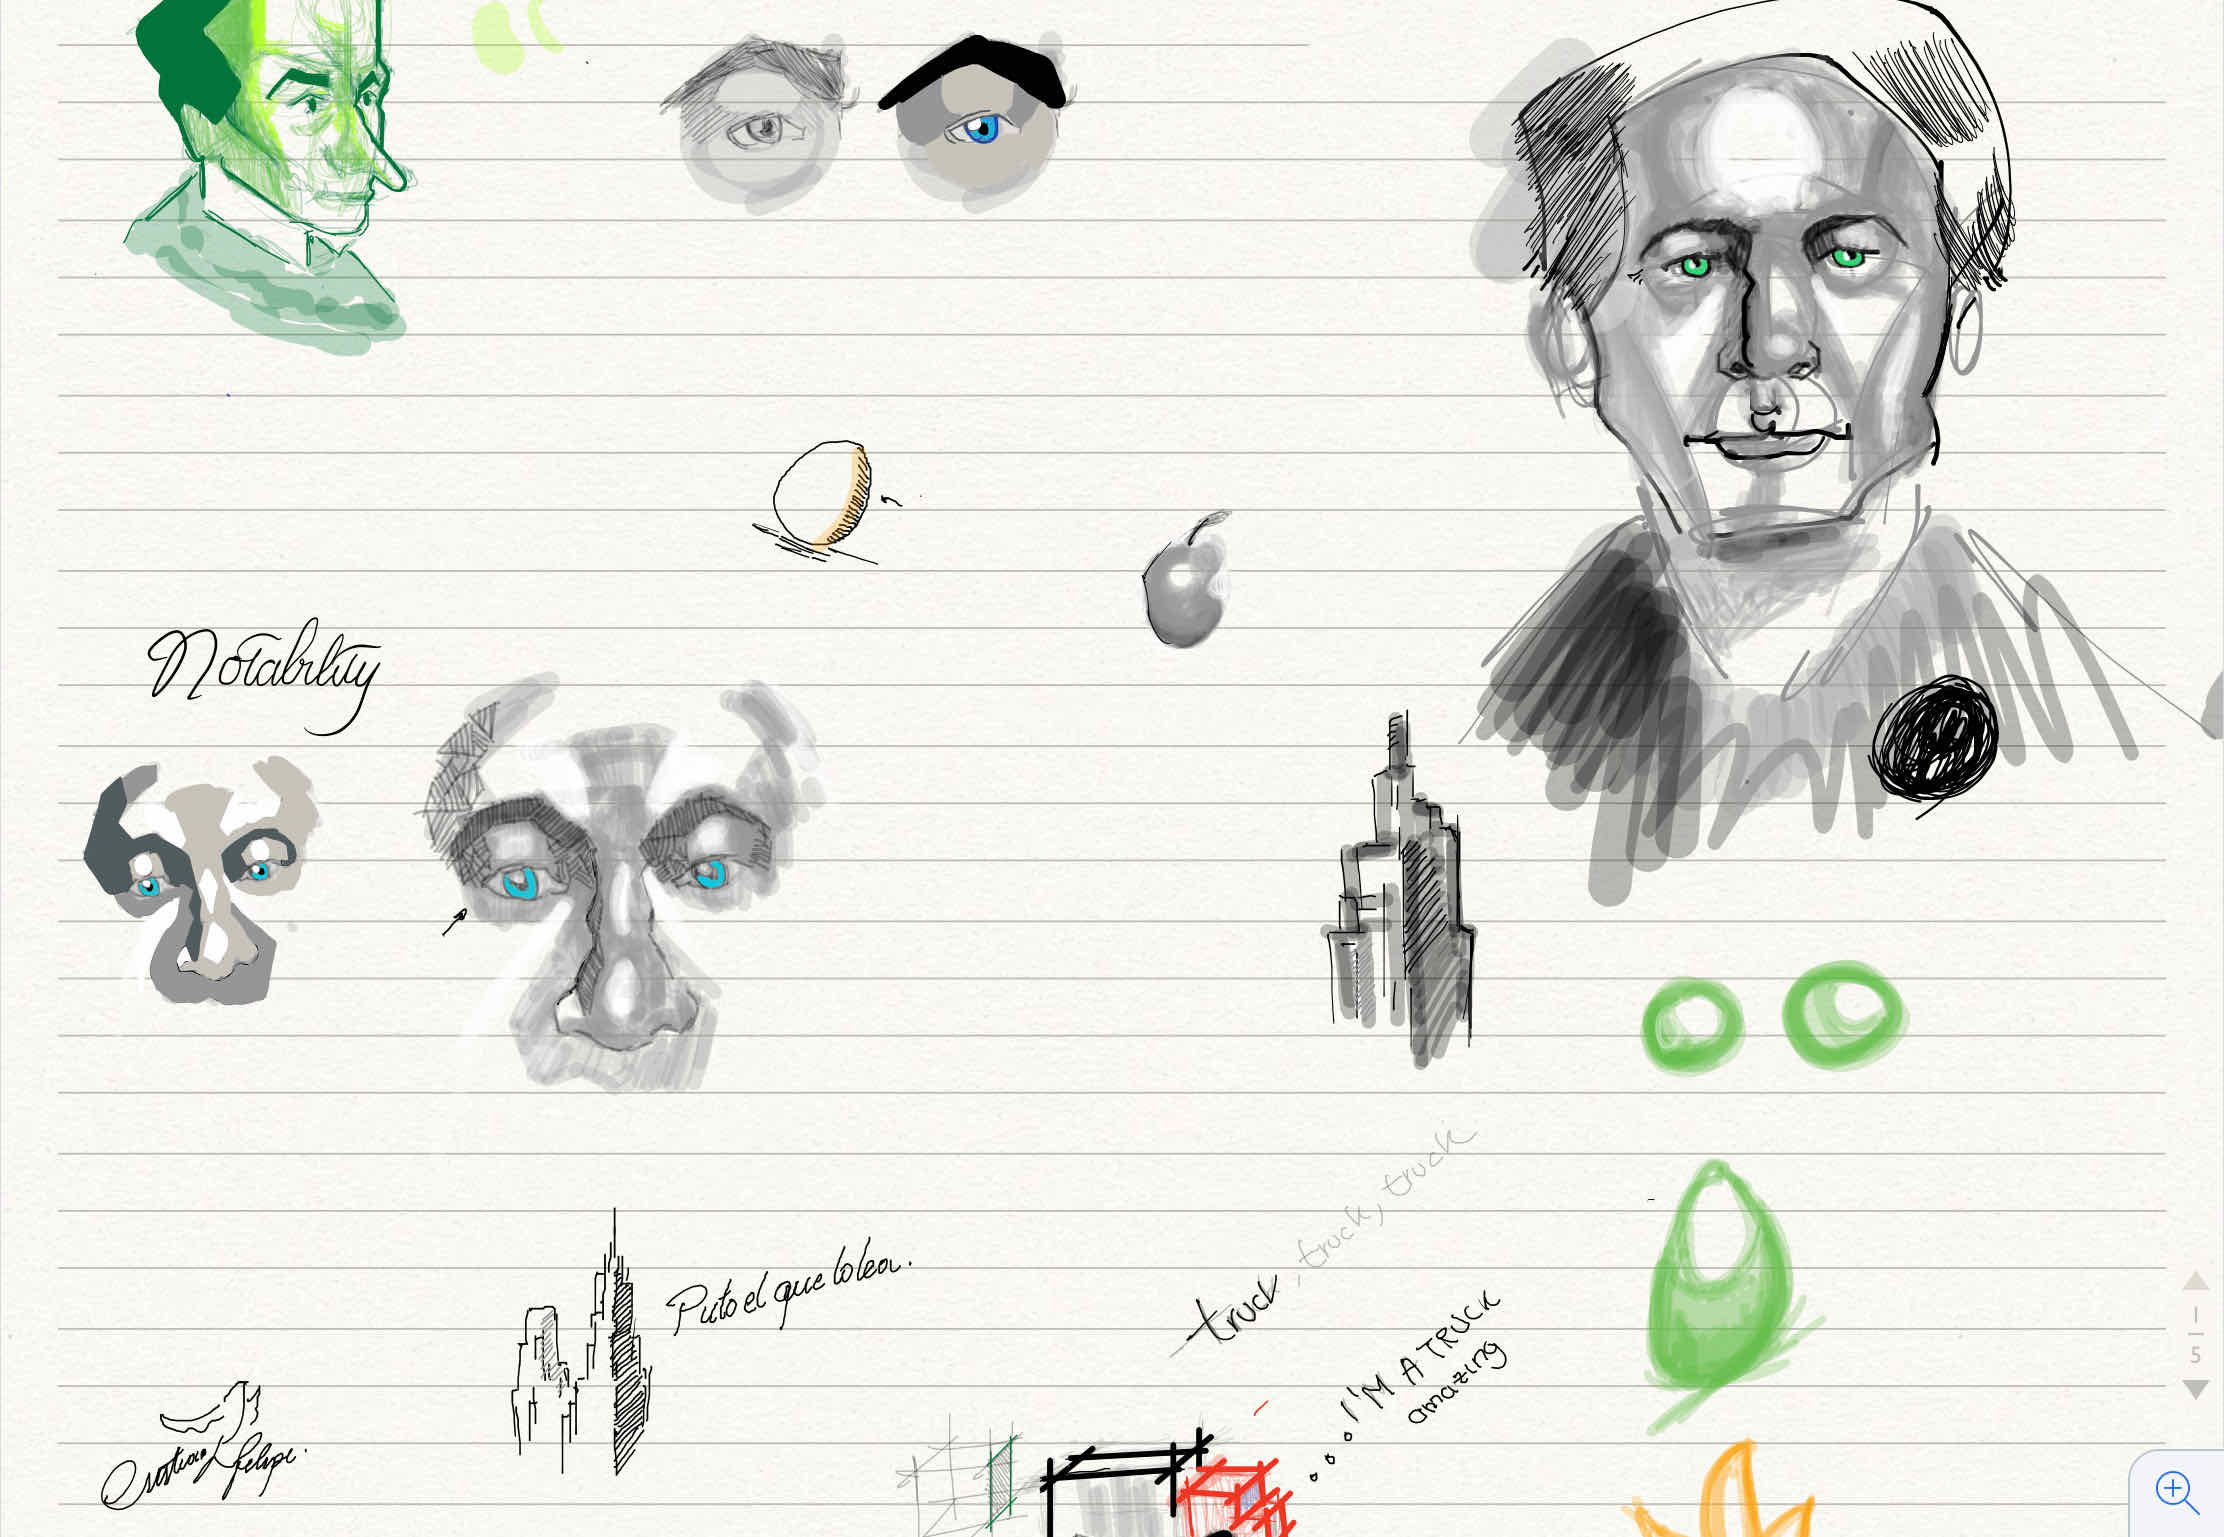 Notability
Puto el que lo lea.
truck, truck, truck
I'M A TRUCK
amazing
Cristian Felipe.
1
5